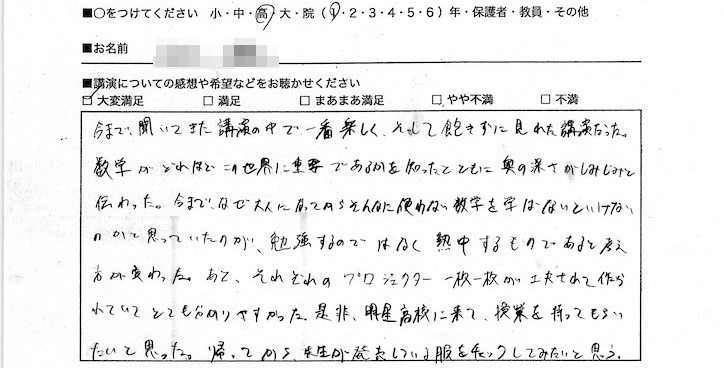 ■○をつけてください 小・中・高・大・院（1・2・3・4・5・6）年・保護者・教員・その他
■お名前
■講演についての感想や希望などをお聴かせください
□ 大変満足 □ 満足 □ まあまあ満足 □ やや不満 □ 不満
今まで、聞いてきた講演の中で一番楽しく、そして飽きずに見れた講演だった。
数学がどれほどこの世界に重要であるかを知ったとともに奥の深さがしみじみと
伝わった。今まで、なぜ大人になってからそんなに使わない数学を学ばないといけない
のかと思っていたのが、勉強するのではなく熱中するものであると考え
方が変わった。あと、それぞれのプロジェクター一枚一枚が工夫されて作ら
れていてとても分かりやすかった。是非、明星高校に来て、授業を持ってもらい
たいと思った。帰ってから、先生が発表している服をチェックしてみたいと思う。